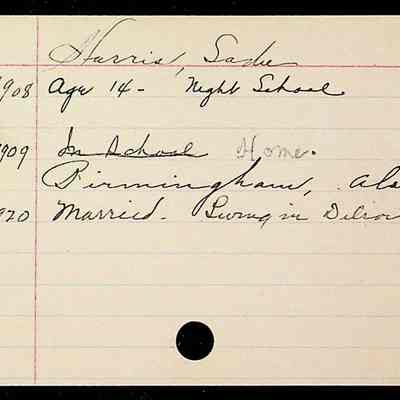 Harris, Sadie
1908 Age 14 - Night School
1909 In School Home.
Birmingham, Ala
1920 Married. Living in Detroi